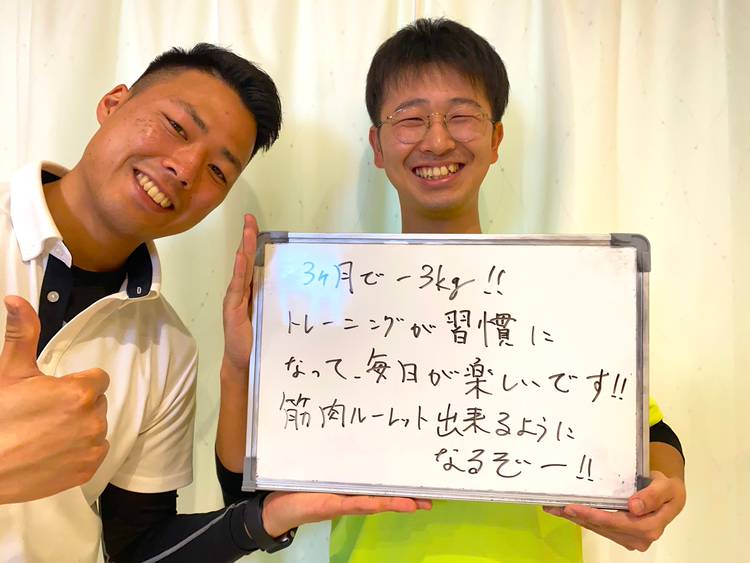 3ヶ月で－3kg!!
トレーニングが習慣に
なって、毎日が楽しいです!!
筋肉ルーレット出来るように
なるぞー!!